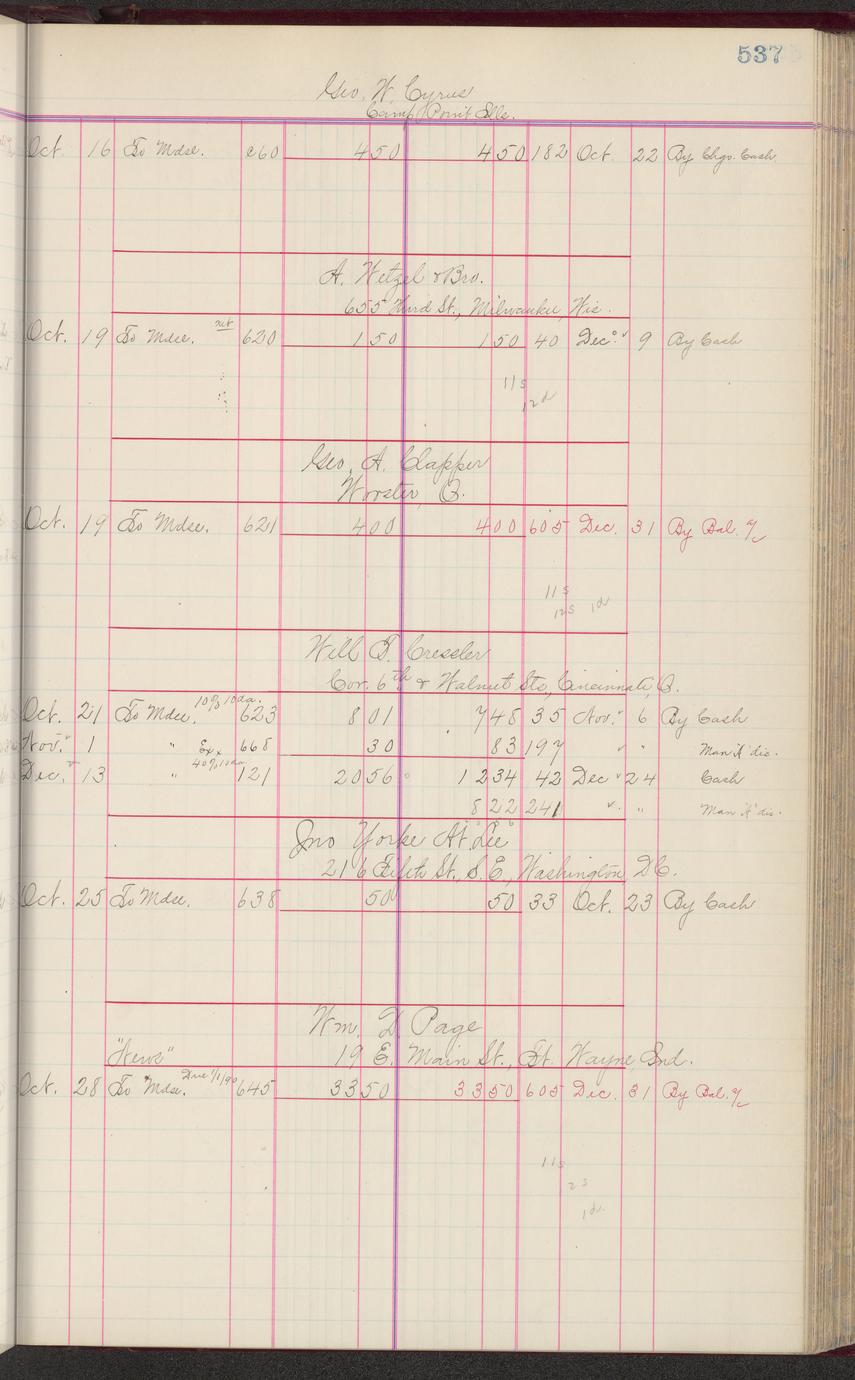 537
Geo. W. Cyrus
Camp Point, Ills.
Oct. 16 To Mdse. 260 4 50 4 50 182 Oct. 22 By Chgo. Cash
A. Wetzel & Bro.
655 Third St., Milwaukee, Wis.
Oct. 19 To Mdse. net 620 1 50 1 50 40 Dec. 9 By Cash
11 s
12 d
Geo. A. Clapper
Wooster, O.
Oct. 19 To Mdse. 621 4 00 4 00 605 Dec. 31 By Bal. %
11 s
12 s 1 d
Will T. Cressler
Cor. 6th & Walnut Sts., Cincinnati, O.
Oct. 21 To Mdse. 10% 10 da. 623 8 01 7 48 35 Nov. 6 By Cash
Nov. 1 " Ex x 668 30 83 197 " " Man'f' dis.
Dec. 13 " 40% 10 da 121 20 56 12 34 42 Dec 24 Cash
8 22 241 " " Man'f' dis.
Jno Yorke AtLee
216 Fifth St., S.E., Washington D.C.
Oct. 25 To Mdse. 638 50 50 33 Oct. 23 By Cash
Wm. D. Page
"News" 19 E. Main St., Ft. Wayne, Ind.
Oct. 28 To Mdse. Due 1/1/90 645 33 50 33 50 605 Dec. 31 By Bal. %
11 s
2 s
1 d.